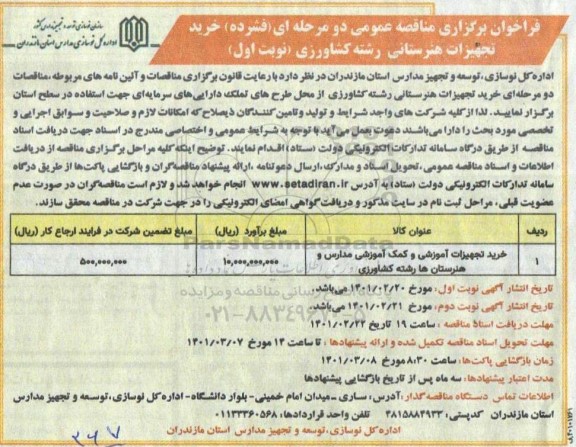 سازمان نوسازی، توسعه و تجهیز مدارس کشور
اداره کل نوسازی مدارس استان مازندران
فراخوان برگزاری مناقصه عمومی دو مرحله ای (فشرده) خرید
تجهیزات هنرستانی رشته کشاورزی (نوبت اول)
اداره کل نوسازی، توسعه و تجهیز مدارس استان مازندران در نظر دارد با رعایت قانون برگزاری مناقصات و آئین نامه های مربوطه، مناقصات
دو مرحله‌ای خرید تجهیزات هنرستانی رشته کشاورزی از محل طرح های تملک دارایی‌های سرمایه‌ای جهت استفاده در سطح استان
برگزار نمایید. لذا از کلیه شرکت های واجد شرایط و تولید و تامین کنندگان ذیصلاح که امکانات لازم و صلاحیت و سوابق اجرایی و
تخصصی مورد بحث را دارا می‌باشند دعوت بعمل می‌آید با توجه به شرایط عمومی و اختصاصی مندرج در اسناد جهت دریافت اسناد
مناقصه از طریق درگاه سامانه تدارکات الکترونیکی دولت (ستاد) اقدام نمایند. توضیح اینکه کلیه مراحل برگزاری مناقصه از دریافت
اطلاعات و اسناد مناقصه عمومی، تحویل اسناد و مدارک، ارسال دعوتنامه، ارائه پیشنهاد مناقصه‌گران و بازگشایی پاکت‌ها از طریق درگاه
سامانه تدارکات الکترونیکی دولت (ستاد) به آدرس www.setadiran.ir انجام خواهد شد و لازم است مناقصه‌گران در صورت عدم
عضویت قبلی، مراحل ثبت نام در سایت مذکور و دریافت گواهی امضای الکترونیکی را در جهت شرکت در مناقصه محقق سازند.
ردیف عنوان کالا مبلغ برآورد (ریال) مبلغ تضمین شرکت در فرایند ارجاع کار (ریال)
۱ خرید تجهیزات آموزشی و کمک آموزشی مدارس و هنرستان ها رشته کشاورزی ۱۰,۰۰۰,۰۰۰,۰۰۰ ۵۰۰,۰۰۰,۰۰۰
ParsNamadData
۰۲۱-۸۸۳۴۹۶۷۰-۵
تاریخ انتشار آگهی نوبت اول: مورخ ۱۴۰۱/۰۲/۲۰ می‌باشد.
تاریخ انتشار آگهی نوبت دوم: مورخ ۱۴۰۱/۰۲/۲۱ می‌باشد.
مهلت دریافت اسناد مناقصه : ساعت ۱۹ تاریخ ۱۴۰۱/۰۲/۲۲
مهلت تحویل اسناد مناقصه تکمیل شده و ارائه پیشنهادها : تا ساعت ۱۴ مورخ ۱۴۰۱/۰۳/۰۷
زمان بازگشایی پاکت‌ها: ساعت ۸:۳۰ مورخ ۱۴۰۱/۰۳/۰۸
مدت اعتبار پیشنهادها: سه ماه پس از تاریخ بازگشایی پیشنهادها
اطلاعات تماس دستگاه مناقصه گذار: آدرس: ساری _ میدان امام خمینی- بلوار دانشگاه- اداره کل نوسازی، توسعه و تجهیز مدارس
استان مازندران کدپستی: ۴۸۱۵۸۸۴۹۳۳ تلفن واحد قراردادها: ۰۱۱۳۳۳۶۰۵۶۸
اداره کل نوسازی، توسعه و تجهیز مدارس استان مازندران
۳۶۷